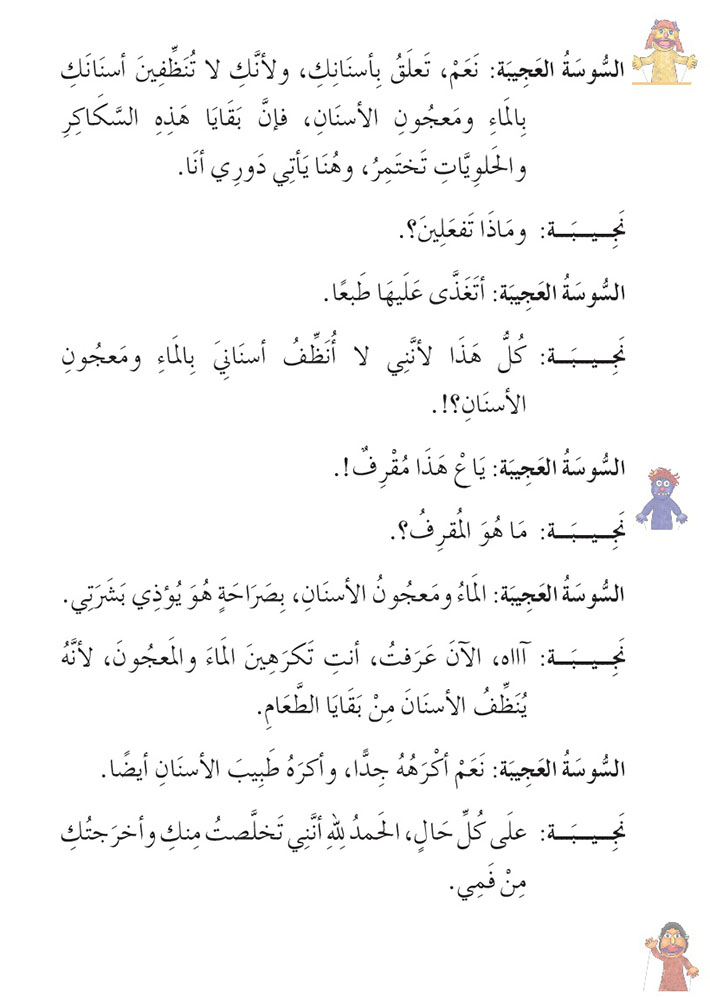 السُّوسَةُ العَجِيبَة: نَعَمْ، تَعلَقُ بِأسنَانِكِ، ولأنَّكِ لا تُنَظِّفِينَ أسنَانَكِ
بِالمَاءِ ومَعجُونِ الأسنَانِ، فإنَّ بَقَايَا هَذِهِ السَّكَاكِرِ
والحَلوِيَّاتِ تَختَمِرُ، وهُنَا يَأتِي دَورِي أنَا.
نَجِـــيـــبَـــة: ومَاذَا تَفعَلِينَ؟.
السُّوسَةُ العَجِيبَة: أتَغَذَّى عَلَيهَا طَبعًا.
نَجِـــيـــبَـــة: كُلُّ هَذَا لأنَّنِي لا أُنَظِّفُ أسنَانِيَ بِالمَاءِ ومَعجُونِ
الأسنَانِ؟!.
السُّوسَةُ العَجِيبَة: يَاعْ هَذَا مُقْرِفٌ!.
نَجِـــيـــبَـــة: مَا هُوَ المُقرِفُ؟.
السُّوسَةُ العَجِيبَة: المَاءُ ومَعجُونُ الأسنَانِ، بِصَرَاحَةٍ هُوَ يُؤذِي بَشَرَتِي.
نَجِـــيـــبَـــة: آااه، الآنَ عَرَفتُ، أنتِ تَكرَهِينَ المَاءَ والمَعجُونَ، لأنَّهُ
يُنَظِّفُ الأسنَانَ مِنْ بَقَايَا الطَّعَامِ.
السُّوسَةُ العَجِيبَة: نَعَمْ أكْرَهُهُ جِدًّا، وأكرَهُ طَبِيبَ الأسنَانِ أيضًا.
نَجِـــيـــبَـــة: علَى كُلِّ حَالٍ، الحَمدُ لِلهِ أنَّنِي تَخلَّصتُ مِنكِ وأخرَجتُكِ
مِنْ فَمِي.